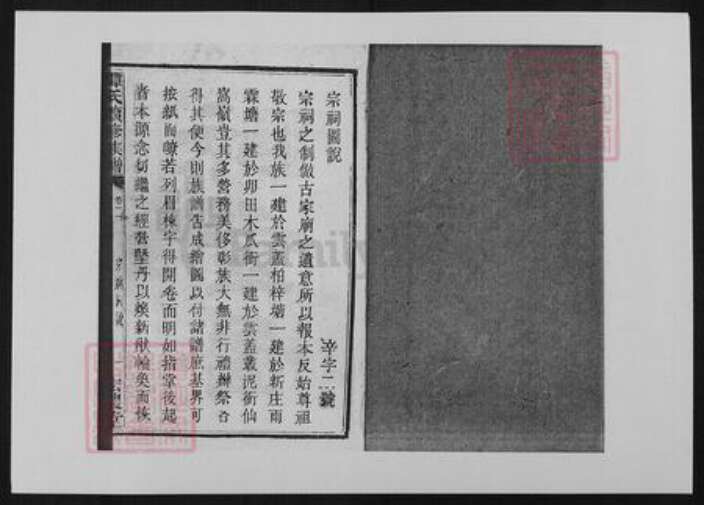 宗祠圖說
辛字二號
宗祠之制倣古家廟之遺意所以報本反始尊祖
敬宗也我族一建於雲蓋柏梓塘一建於新庄雨
霖塘一建於卯田木瓜衝一建於雲蓋叢泥衝仙
嵩嶺豈其多營務美侈彰族大無非行禮辦祭合
得其便今則族譜告成繪圖以付諸譜庶基界可
按紙而瞭若列眉棟宇得開卷而明如指掌後起
者本源念切繼之經營墍丹以煥新猷輪奐而恢
氏續修族譜
卷二